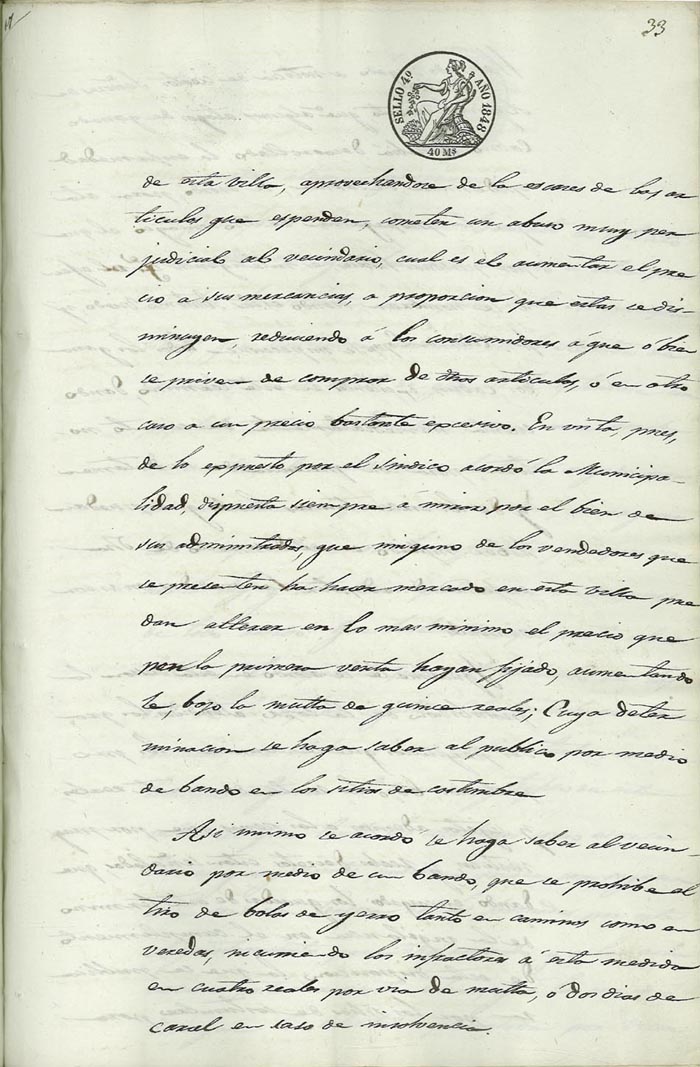 33
SELLO 4º AÑO 1848
40 Ms
de esta villa, aprovechandose de la escases de los ar
ticulos que espenden, cometen un abuso muy per
judicial al vecindario, cual es el aumentar el pre
cio a sus mercancias, a proporcion que estas se dis-
minuyen, reduciendo á los consumidores á que ó bien
se priven de comprar de dhos articulos, ó en otro
caso a un precio bastante excesivo. En vista, pues,
de lo expuesto por el sindico acordó la Municipa-
lidad, dispuesta siempre a mirar por el bien de
sus administrados, que ninguno de los vendedores que
se presenten ha hacer mercado en esta villa pue
dan alterar en lo mas minimo el precio que
por la primera venta hayan fijado, aumentando
le, bajo la multa de quince reales; Cuya deter
minacion se haga saber al publico por medio
de bando en los sitios de costumbre
Asi mismo se acordo se haga saber al vecin-
dario por medio de un bando, que se prohibe el
tiro de bolas de yerro tanto en caminos como en
veredas, incurriendo los infractores á esta medida
en cuatro reales por via de multa, ó dos dias de
carcel en caso de insolvencia.